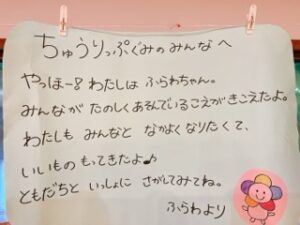 ちゅうりっぷぐみのみんなへ
やっほー♪わたしは ふらわちゃん。
みんなが たのしく あそんでいるこえが きこえたよ。
わたしも みんなと なかよくなりたくて、
いいもの もってきたよ♪
ともだちと いっしょに さがしてみてね。
ふらわより